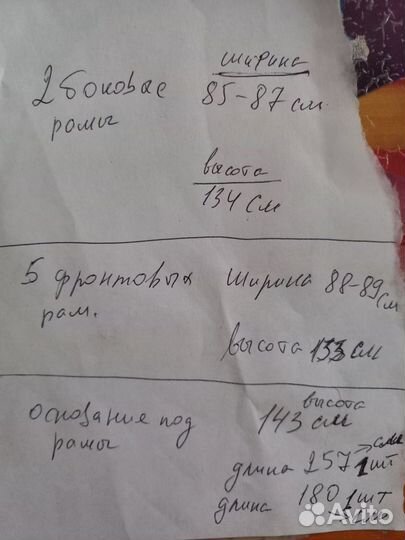 2 боковые
рамы
ширина
85-87 см
высота
134 см
5 фронтовых
рам.
ширина 88-89 см
высота 133 см
основание под
рамы
высота
143 см
длина 257 см 1 шт
длина 180 1 шт
Avito